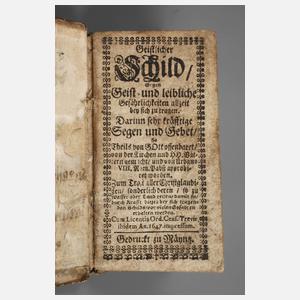 Geistlicher
Schild/
Gegen
Geist- und leibliche
Gefährlichkeiten allzeit
bey sich zu tragen.
Darinn sehr kräfftige
Segen und Gebet/
So
Theils von GOtt offenbaret/
von der Kirchen und HH. Vä-
tern gemacht/ und von Urbano
VIII. Röm. Pabst approbi-
ret worden.
Zum Trost aller Christglaubi-
gen/ sonderlich deren/ so zu
Wasser oder Land reisen
Cum Licentia Ord. Cens. Trevir.
ibidem An. 1647. impressum.
Gedruckt zu Mäyntz.